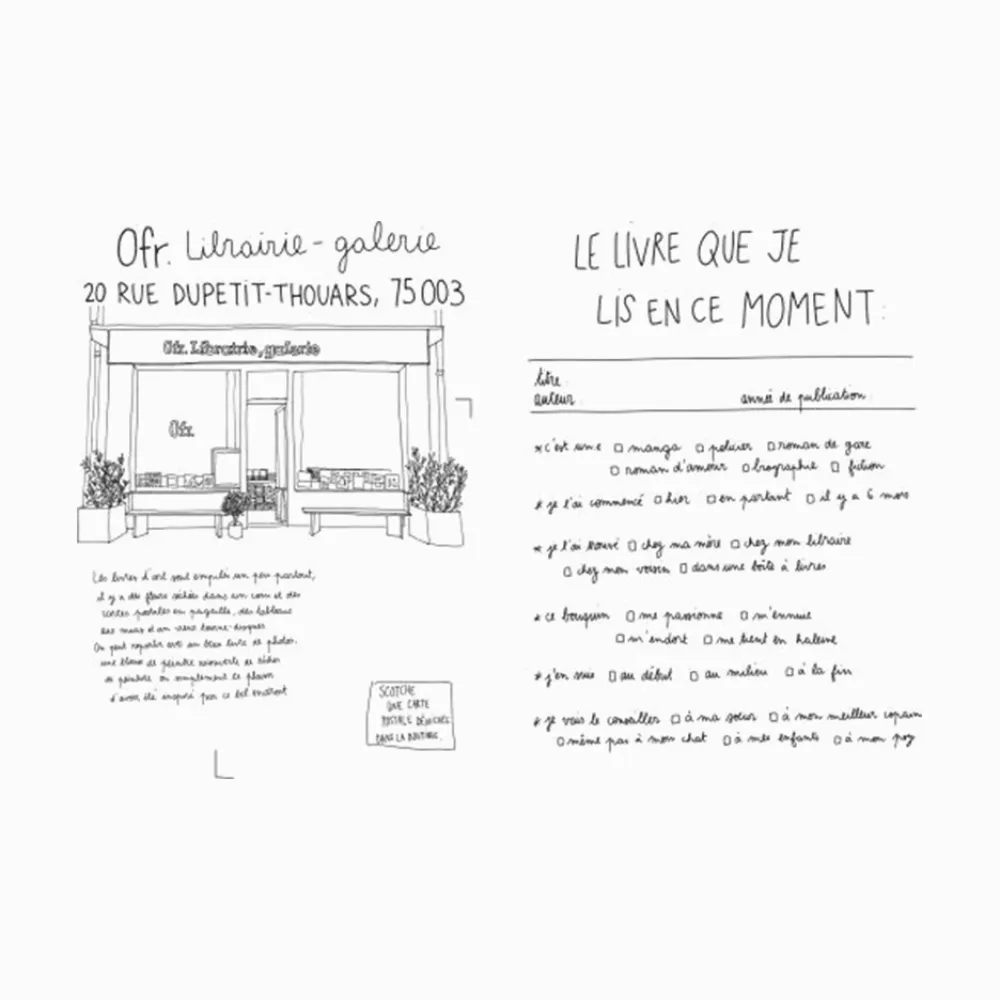 Ofr. Librairie - galerie
20 RUE DUPETIT-THOUARS, 75003
Ofr. Librairie, galerie
Ofr.
Les livres d'art sont empilés un peu partout,
il y a des fleurs séchées dans un coin et des
cartes postales en pagaille, des tableaux
aux murs et un vieux tourne-disques
On peut repartir avec un beau livre de photos,
une blouse de peintre recouverte de
de peinture ou simplement le plaisir
d'avoir été inspiré par ce bel endroit
SCOTCHE
UNE CARTE
POSTALE DÉNICHÉE
DANS LA BOUTIQUE.
LE LIVRE QUE JE
LIS EN CE MOMENT:
titre
auteur année de publication
*c'est un·e manga policier roman de gare
roman d'amour biographie fiction
*je l'ai commencé hier en partant il y a 6 mois
*je l'ai trouvé chez ma mère chez mon libraire
chez mon voisin dans une boîte à livres
*ce bouquin me passionne m'ennuie
m'endort me tient en haleine
*j'en suis au début au milieu à la fin
*je vais le conseiller à ma soeur à mon meilleur copain
même pas à mon chat à mes enfants à mon psy